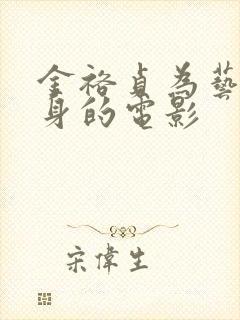 金裕貞為藝
身的電影
宋偉生